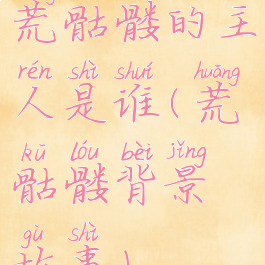 荒骷髅的主
rén shì shuí huāng
人是谁(荒
kū lóu bèi jǐng
骷髅背景
gù shì
故事)